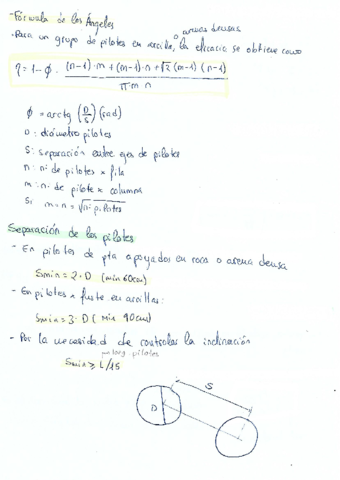 - Fórmula de los Ángeles
o arenas densas
- Para un grupo de pilotes en arcilla, la eficacia se obtiene como
η = 1 - ϕ · ((n-1)·m + (m-1)·n + √2 (m-1) (n-1)) / (π m n)
ϕ = arctg (D/S) (rad)
D: diámetro pilotes
S: separación entre ejes de pilotes
n: nº de pilotes x fila
m: nº de pilote x columna
Si m = n = √nº pilotes
Separación de los pilotes
- En pilotes de pta apoyados en roca o arena densa
Smin = 2·D (min 60cm)
- En pilotes x fuste en arcillas:
Smin = 3·D (min 90cm)
- Por la necesidad de controlar la inclinación
pilotes
Smin ≥ L/15
S
D